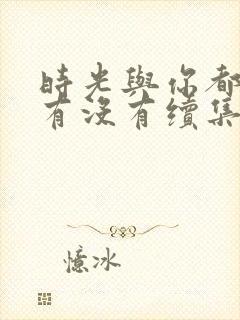 時光與你都
有沒有續集
憶冰